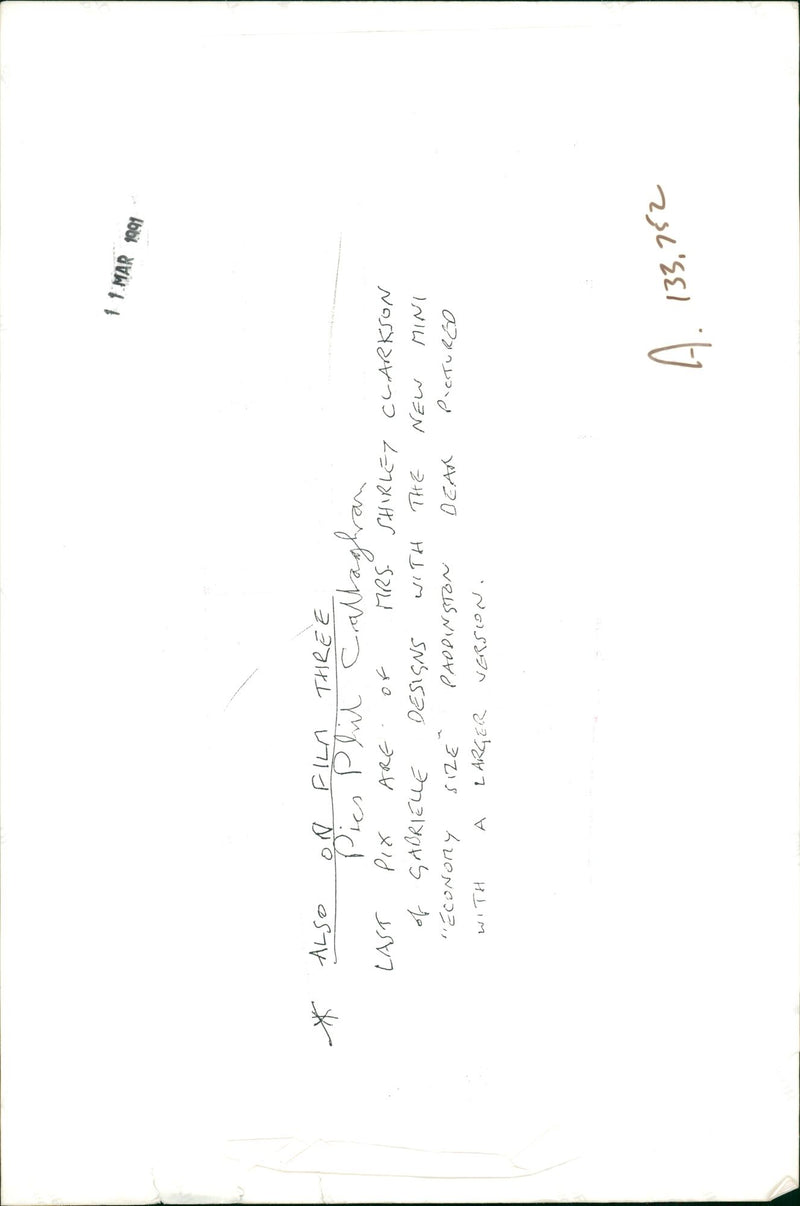 11 MAR 1991
* ALSO ON FILM THREE
Pics Phil Callaghan
LAST PIX ARE OF MRS. SHIRLEY CLARKSON
of GABRIELLE DESIGNS WITH THE NEW MINI
"ECONOMY SIZE" PADDINGTON BEAR PICTURED
WITH A LARGER VERSION.
A. 133,752